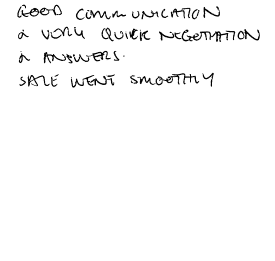 GOOD COMMUNICATION
& VERY QUICK NEGOTIATION
& ANSWERS.
SALE WENT SMOOTHLY